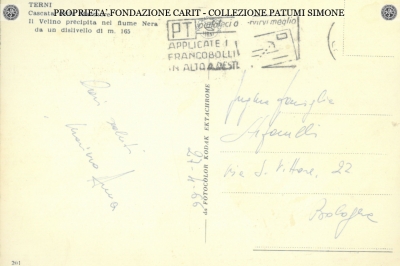 TERNI
PROPRIETA' FONDAZIONE CARIT - COLLEZIONE PATUMI SIMONE
Cascata
Il Velino precipita nel fiume Nera
da un dislivello di m. 165
PT
APPLICATE I
FRANCOBOLLI
IN ALTO A DESTRA
Cari saluti
27-11-66
da FOTOCOLOR KODAK EKTACHROME
Famiglia
Via S. Vittore, 22
Bologna
261